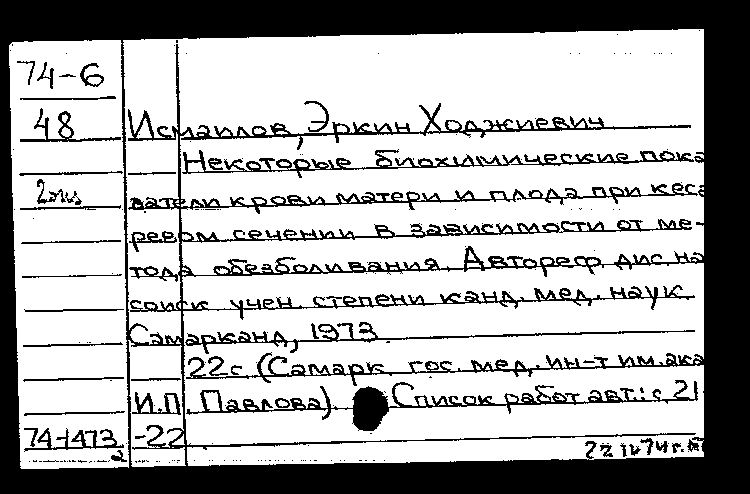 74-6
48 Исмаилов, Эркин Ходжиевич
Некоторые биохимические пока
2 экз затели крови матери и плода при кеса
ревом сечении в зависимости от ме-
тода обезболивания. Автореф. дис. на
соиск. учен. степени канд. мед. наук.
Самарканд, 1973.
22 с. (Самарк. гос. мед. ин-т им. ака
И.П. Павлова). Список работ авт.: с. 21
74-1473 -22
2